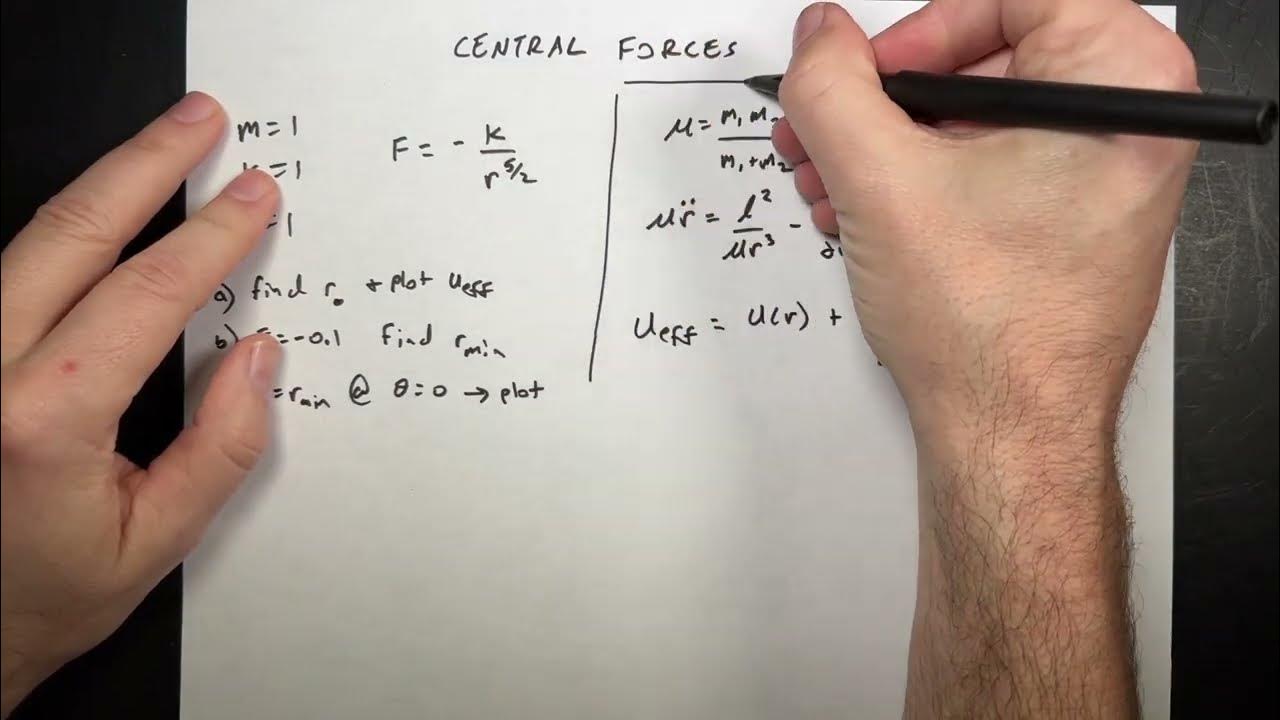 CENTRAL FORCES
m=1
=1
=1
F = - k/r^5/2
a) find r₀ + plot Ueff
b) =-0.1 find rmin
=rmin @ θ=0 → plot
μ = m₁m/m₁+m₂
μr̈ = l²/μr³ -
Ueff = U(r) +